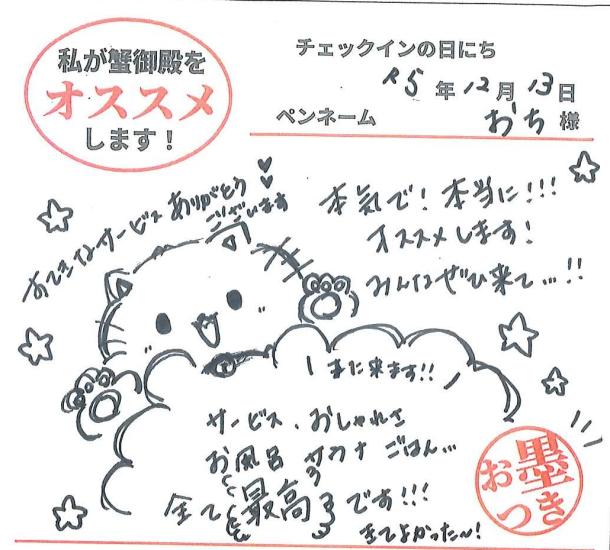 私が蟹御殿を
オススメ
します！
チェックインの日にち
R5年12月13日
ペンネーム おち様
すてきなサービスありがとう
ございます
本気で！本当に!!!
オススメします！
みんなぜひ来て…!!
また来ます!!
サービス、おしゃれさ
お風呂 サカナ ごはん…
全て最高です!!!
きてよかった〜！
お墨つき